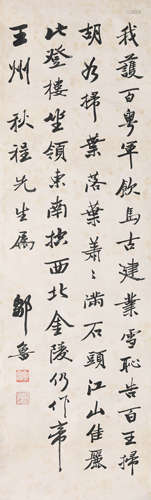 我護百粵軍飲馬古建業雪恥告百王掃
胡如掃葉落葉蕭々滿石頭江山佳麗
此登樓坐領東南控西北金陵仍作帝
王州 秋程先生屬
鄒魯